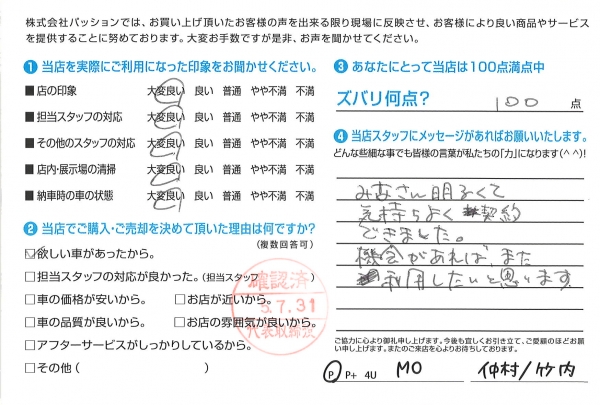 株式会社パッションでは、お買い上げ頂いたお客様の声を出来る限り現場に反映させ、お客様により良い商品やサービス
を提供することに努めております。大変お手数ですが是非、お声を聞かせてください。
1 当店を実際にご利用になった印象をお聞かせください。
■店の印象 大変良い 良い 普通 やや不満 不満
■担当スタッフの対応 大変良い 良い 普通 やや不満 不満
■その他のスタッフの対応 大変良い 良い 普通 やや不満 不満
■店内・展示場の清掃 大変良い 良い 普通 やや不満 不満
■納車時の車の状態 大変良い 良い 普通 やや不満 不満
2 当店でご購入・ご売却を決めて頂いた理由は何ですか?
(複数回答可)
☑欲しい車があったから。
□担当スタッフの対応が良かった。(担当スタッフ
□車の価格が安いから。 □お店が近いから。
□車の品質が良いから。 □お店の雰囲気が良いから。
□アフターサービスがしっかりしているから。
□その他( )
確認済
5.7.31
代表取締役
3 あなたにとって当店は100点満点中
ズバリ何点? 100 点
4 当店スタッフにメッセージがあればお願いいたします。
どんな些細な事でも皆様の言葉が私たちの「力」になります(^^)!
みなさん明るくて
気持ちよく 契約
できました。
機会があれば、また
利用したいと思います
ご協力に心より御礼申し上げます。今後も宜しくお引き立て、ご愛顧のほどお願
い申し上げます。またのご来店を心よりお待ちしております。
P P+ 4U MO 仲村/竹内